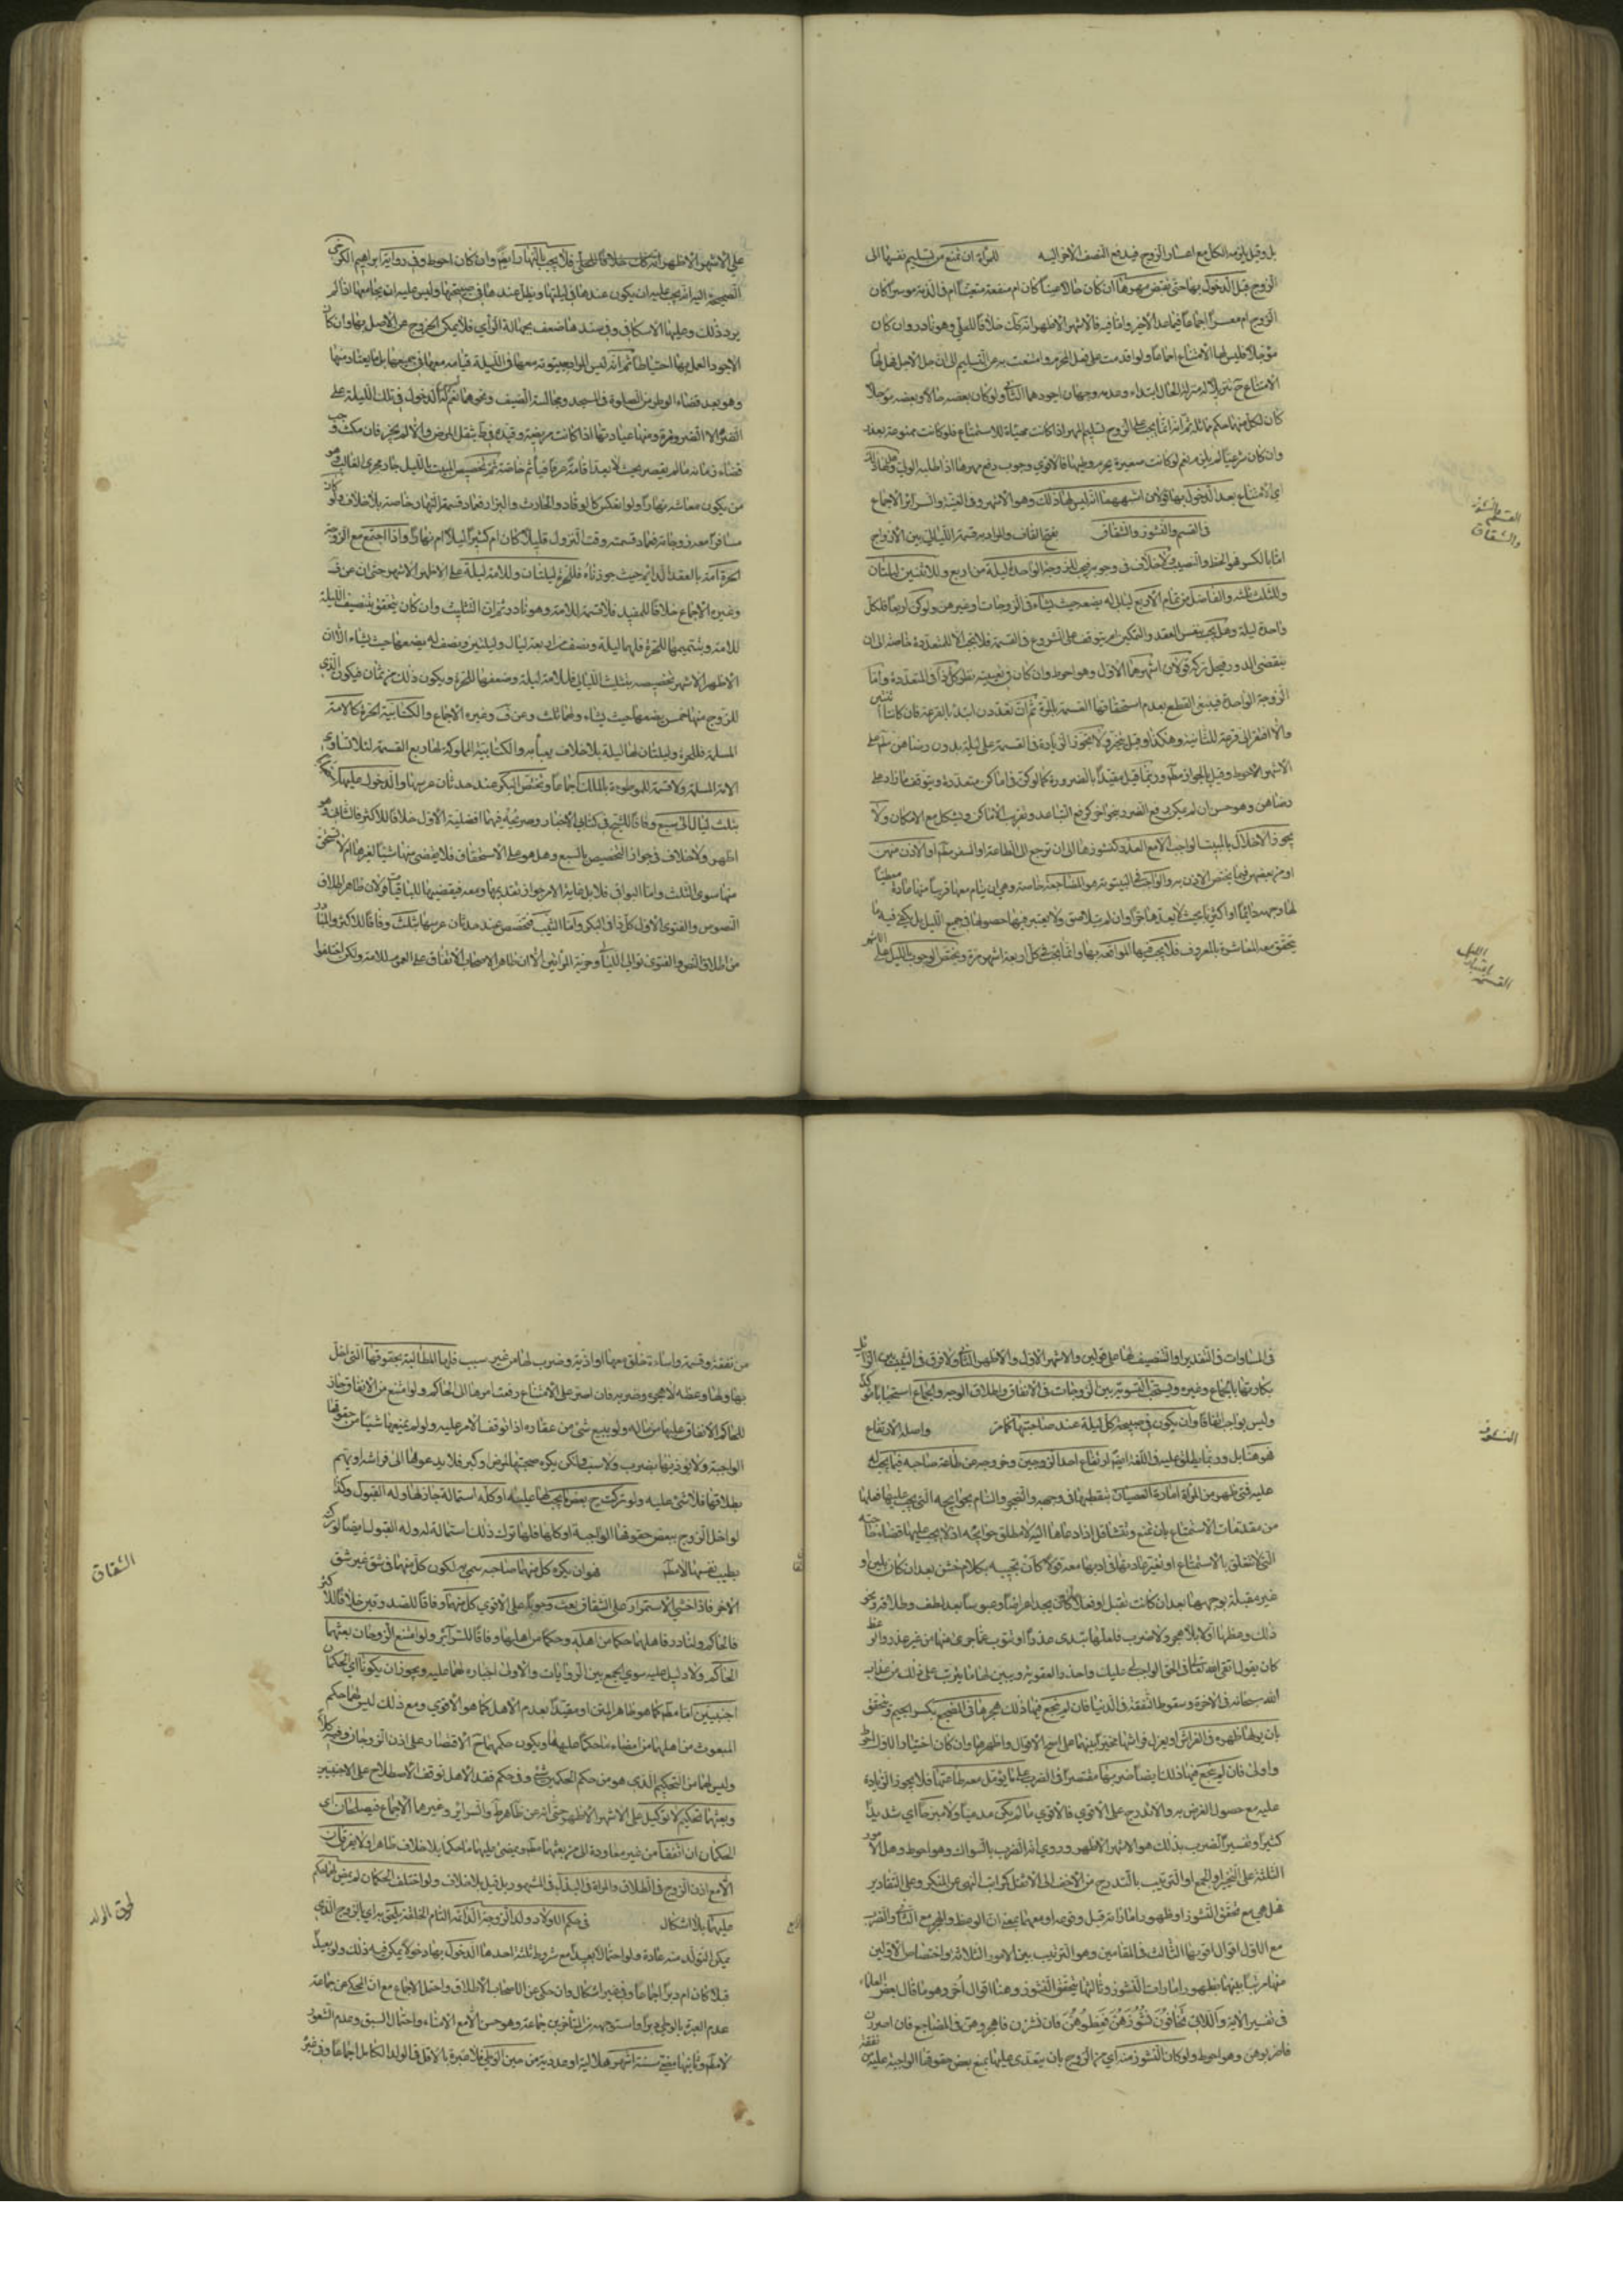 بل وقيل يلزمه الكل مع اعسار الزوج فيدفع النصف الآخر اليه للمرأة ان تمتنع من تسليم نفسها الى
الزوج قبل الدخول بها حتى تقبض مهرها ان كان حالا عينا كان ام منفعة متعينا ام في الذمة موسرا كان
الزوج ام معسرا اجماعا فيما عدا الاخير واما فيه فالاشهر الاظهر انه كذلك خلافا للحلي وهو نادر وان كان
مؤجلا فليس لها الامتناع اجماعا ولو اقدمت على فعل المحرم وامتنعت به من التسليم الى ان حل الاجل فهل لها
الامتناع ح تنزيلا له منزلة الحال ابتداء وعدمه وجهان اجودهما الثاني ولو كان بعضه حالا وبعضه مؤجلا
كان لكل منهما حكم مماثله ثم انه انما يجب على الزوج تسليم المهر اذا كانت مهيأة للاستمتاع فلو كانت ممنوعة بعذر
وان كان شرعيا لم يلزم نعم لو كانت صغيرة يحرم وطيها فالاقوى وجوب دفع مهرها اذا طلبه الولي وهل لها ذلك
اي الامتناع بعد الدخول بها قولان اشبههما انه ليس لها ذلك وهو الاشهر وفي الغنية والسرائر الاجماع
في القسم والنشوز والشقاق بفتح القاف والمراد به قسمة الليالي بين الازواج
اما بالكسر فهو الحظ والنصيب ولا خلاف في وجوبه فيجب للزوجة الواحدة ليلة من اربع وللاثنين ليلتان
وللثلث ثلثة والفاضل من تمام الاربع ليال له يضعه حيث يشاء في الزوجات وغيرهن ولو كن اربعا فلكل
واحدة ليلة وهل يجب بنفس العقد والتمكين ام يتوقف على الشروع في القسمة فلا تجب الا للمتعددة خاصة الى ان
ينقضي الدور فيحل تركه قولان اشهرهما الاول وهو احوط وان كان في تعيينه نظر كل ذا في المتعددة واما
الزوجة الواحدة فينبغي القطع بعدم استحقاقها القسمة بالمرة ثم ان تعددن ابتدء بالقرعة فان كانتا اثنتين
والا افتقر الى قرعة للثانية وهكذا وقيل يتخير ولا يجوز الزيادة في القسمة على ليلة بدون رضاهن على
الاشهر الاحوط وقيل بالجواز مطلقا وربما قيل مقيدا بالضرورة كما لو كن في اماكن متعددة ويتوقف ما زاد على
رضاهن وهو حسن ان لم يمكن رفع الضرر بنحو اخر كرفع التباعد وتقريب الاماكن ويشكل مع الامكان ولا
يجوز الاخلال بالمبيت الواجب الا مع العذر كنشوزها الى ان ترجع الى الطاعة او السفر مطلقا او الاذن منهن
او من بعضهن فيما يختص الاذن به والواجب في البيتوتة هو المضاجعة خاصة وهي ان ينام معها قريبا منها عادة معطيا
لها وجهه دائما او اكثريا بحيث لا يعد هاجرا وان لم يتلاصق ولا يعتبر فيها حصولها في جميع الليل بل يكفي فيه ما
يتحقق معه المعاشرة بالمعروف فلا يجب فيها المواقعة بها وانما تجب في كل اربعة اشهر مرة ويختص الوجوب بالليل على الاشهر
القسم والنشوز
والشقاق
الليل
اعتبار
القسمة
على الاشهر الاظهر انه كذلك خلافا للحلبي فلا يجب بالنهار ايضا وان كان احوط وفي رواية ابراهيم الكرخي
الصحيحة اليه انه يجب عليه ان يكون عندها في ليلتها ويظل عندها في صبيحتها وليس عليه ان يجامعها اذا لم
يرد ذلك وعليها الاسكافي وفي سندها ضعف بجهالة الراوي فلا يمكن الخروج عن الاصل بها وان كان
الاجود العمل بها احتياطا ثم انه ليس المراد ببيتوتته معها في الليلة قيامه معها في جميعها بل ما يعتاد منها
وهو بعد قضاء الوطر من الصلوة في المسجد ومجالسة الضيف ونحوهما نعم ليس له الدخول في تلك الليلة على
الضرة الا لضرورة ومنها عيادتها اذا كانت مريضة وقيده في ط بثقل المرض والا لم يجز فان مكث وجب
قضاء زمانه ما لم يقصر بحيث لا يعد اقامة عرفا فيأثم خاصة ثم تخصيص المبيت بالليل جار مجرى الغالب وهو
من يكون معاشه نهارا ولو انعكس كالوقاد والحارث والبزار فعماد قسمته النهار خاصة بلا خلاف ولو كان
مسافرا معه زوجاته فعماد قسمته وقت النزول قليلا كان ام كثيرا ليلا ام نهارا واذا اجتمع مع الزوجة
الحرة امة بالعقد الدائم حيث جوزناه فللحرة ليلتان وللامة ليلة على الاظهر الاشهر حتى ان عن ف
وغيره الاجماع خلافا للمفيد فلا قسمة للامة وهو نادر ثم ان التثليث وان كان يتحقق بتنصيف الليلة
للامة وبتتميمها للحرة فلهما ليلة ونصف من اربعة ليال وليلتين ونصف له يضعها حيث يشاء الا ان
الاظهر الاشهر تخصيصه بثلث الليالي فللامة ليلة وضعفها للحرة ويكون ذلك من ثمان فيكون الذي
للزوج منها خمس يضعها حيث يشاء ولهما ثلث وعن ف وغيره الاجماع والكتابية الحرة كالامة
المسلمة فللحرة وليلتان لها ليلة بلا خلاف يعبأ به والكتابية المملوكة لها ربع القسمة لئلا تساوي
الامة المسلمة ولا قسمة للموطوءة بالملك اجماعا وتختص البكر عند حدثان عرسها والدخول عليها
بثلث ليال الى سبع وفاقا للشيخ في كتابي الاخبار وصريحه فيهما افضلية الاول خلافا للاكثر فالثاني وهو
اظهر ولا خلاف في جواز التخصيص بالسبع وهل هو على الاستحقاق فلا يقضى منها شيئا لغيرها ام لا تستحق
منها سوى الثلث واما البواقي فلا بل غاية الامر جواز تقديمها ومعه فيقضيها للباقيات قولان ظاهر اطلاق
النصوص والفتوى الاول كل ذا في البكر واما الثيب فتختص عند حدثان عرسها بثلث وفاقا للاكثر والمتبادر
من اطلاق النص والفتوى توالي الليالي وحرية المرأتين الا ان ظاهر الاصحاب الاتفاق على العموم للامة ولكن اختلفوا
في المساوات في التقدير او التنصيف لها على قولين والاشهر الاول والاظهر الثاني ولا فرق في الثيب بين الزائل
بكارتها بالجماع وغيره ويستحب التسوية بين الزوجات في الانفاق واطلاق الوجه والجماع استحبابا مؤكدا
وليس بواجب اتفاقا وان يكون في صبيحة كل ليلة عند صاحبتها كما مر واصله الارتفاع
فهو هنا بل وربما يطلق عليه في اللغة ايضا ارتفاع احد الزوجين وخروجه عن طاعة صاحبه فيما يجب له
عليه فمتى ظهر من المرأة امارة العصيان بتقطيبها في وجهه والضجر والسأم بحوائجه التي يجب عليها فعلها
من مقدمات الاستمتاع بان تمتنع وتتثاقل اذا دعاها اليه لا مطلق حوائجه اذ لا يجب عليها قضاء حاجته
التي لا تتعلق بالاستمتاع او تغير عادتها في ادبها معه قولا كأن تجيبه بكلام خشن بعد ان كان بلين او
غير مقبلة بوجهها بعد ان كانت تقبل او فعلا كأن يجد اعراضا وعبوسا بعد لطف وطلاقة ونحو
ذلك وعظها اولا بلا هجر ولا ضرب فلعلها تبدي عذرا او تتوب عما جرى منها من غير عذر والوعظ
كان يقول اتقي الله تعالى في الحق الواجب لي عليك واحذري العقوبة ويبين لها ما يترتب على ذلك من عذاب
الله سبحانه في الاخرة وسقوط النفقة في الدنيا فان لم ينجع فيها ذلك هجرها في المضجع بكسر الجيم وتحقق
بان يوليها ظهره في الفراش او يعزل فراشها مخيرا بينهما على اصح الاقوال واظهرها وان كان اختيار الاول احوط
واولى فان لم ينجع فيها ذلك ايضا ضربها مقتصرا في الضرب على ما يؤمل معه طاعتها فلا يجوز الزيادة
عليه مع حصول الغرض به والا تدرج على الاقوى فالاقوى ما لم يكن مدميا ولا مبرحا اي شديدا
كثيرا وتفسير الضرب بذلك هو الاشهر الاظهر وروي انه الضرب بالسواك وهو احوط وهل الامور
الثلثة على التخيير او الجمع او الترتيب بالتدرج من الاخف الى الاثقل كمراتب النهي عن المنكر وعلى التقادير
هل هي مع تحقق النشوز او ظهور اماراته قبل وقوعه او معهما بمعنى ان الوعظ والهجر مع الثاني والضرب
مع الاول اقوال اقويها الثالث في المقامين وهو الترتيب بين الامور الثلاثة واختصاص الاولين
منها مرتبا بينهما بظهور امارات النشوز وثالثها بتحقق النشوز وهنا اقوال اخر وهو ما قال بعض العلماء
في تفسير الاية واللاتي تخافون نشوزهن فعظوهن فان نشزن فاهجروهن في المضاجع فان اصررن
فاضربوهن وهو احوط ولو كان النشوز منه اي من الزوج بان يتعدى عليها بمنع بعض حقوقها الواجبة عليه من نفقة
النشوز
من نفقة وقسمة واساءة خلق معها او اذية وضرب لها من غير سبب فلها المطالبة بحقوقها التي اخل
بها ولها وعظه لا هجره وضربه فان اصر على الامتناع رفعت امرها الى الحاكم ولو امتنع من الانفاق جاز
للحاكم الانفاق عليها من ماله ولو ببيع شئ من عقاره اذا توقف الامر عليه ولو لم يمنعها شيئا من حقوقها
الواجبة ولا يؤذيها بضرب ولا سب ولكن يكره صحبتها لمرض او كبر فلا يدعوها الى فراشه او يهم
بطلاقها فلا شئ عليه ولو تركت ح بعض ما يجب لها عليه او كله استمالة جاز لها وله القبول وكذا
لو اخل الزوج ببعض حقوقها الواجبة او كلها فلها ترك ذلك استمالة له وله القبول ايضا لو تركته
بطيب نفسها لا مطلقا فهو ان يكره كل منهما صاحبه سمي به لكون كل منهما في شق غير شق
الاخر فاذا خشي الاستمرار على الشقاق بعث وجوبا على الاقوى كل منهما وفاقا للصدوقين خلافا للاكثر
فالحاكم ولنادر فاهلهما حكما من اهله وحكما من اهلها وفاقا للسرائر ولو امتنع الزوجان بعثهما
الحاكم ولا دليل عليه سوى الجمع بين الروايات والاولى اجباره لهما عليه ويجوز ان يكونا اي الحكمان
اجنبيين اما مطلقا كما هو ظاهر المتن او مقيدا بعدم الاهل كما هو الاقوى ومع ذلك ليس لهما حكم
المبعوث من اهلهما من امضاء ما حكما عليهما ويكون حكمهما ح الاقتصار على اذن الزوجان وفيه كلا
وليس لهما من التحكيم الذي هو من حكم الحكمين شئ وفي حكم فقد الاهل توقف الاصطلاح على الاجنبيين
وبعثهما تحكيم لا توكيل على الاشهر الاظهر حتى انه عن ظاهر ط والسرائر وغيرهما الاجماع فيصلحان اي
الحكمان ان اتفقا من غير معاودة الى من بعثهما مطلقا ويمضي عليهما ما حكما بلا خلاف ظاهر ولا يفرقان
الا مع اذن الزوج في الطلاق والمرأة في البذل في المشهور بل قيل بلا خلاف ولو اختلف الحكمان لم يمض لهما حكم
عليهما بلا اشكال في حكم الاولاد ولد الزوجة الدائمة التام الخلقة يلحق به اي بالزوج الذي
يمكن التولد منه عادة ولو احتمالا بعيدا مع شروط ثلثة احدها الدخول بها دخولا يمكن فيه ذلك ولو بعيدا
قبلا كان ام دبرا اجماعا وفي غيره اشكال وان حكي عن الاصحاب الاطلاق واحتمل الاجماع مع ان المحكي عن جماعة
عدم العبرة بالوطي دبرا واستوجهه من المتأخرين جماعة وهو حسن الا مع الامناء واحتمال السبق وعدم الشعور
لا مطلقا وثانيها مضي ستة اشهر هلالية او عددية من حين الوطي فلا عبرة بالاقل في الولد الكامل اجماعا وفي غيره
الشقاق
لحوق الولد